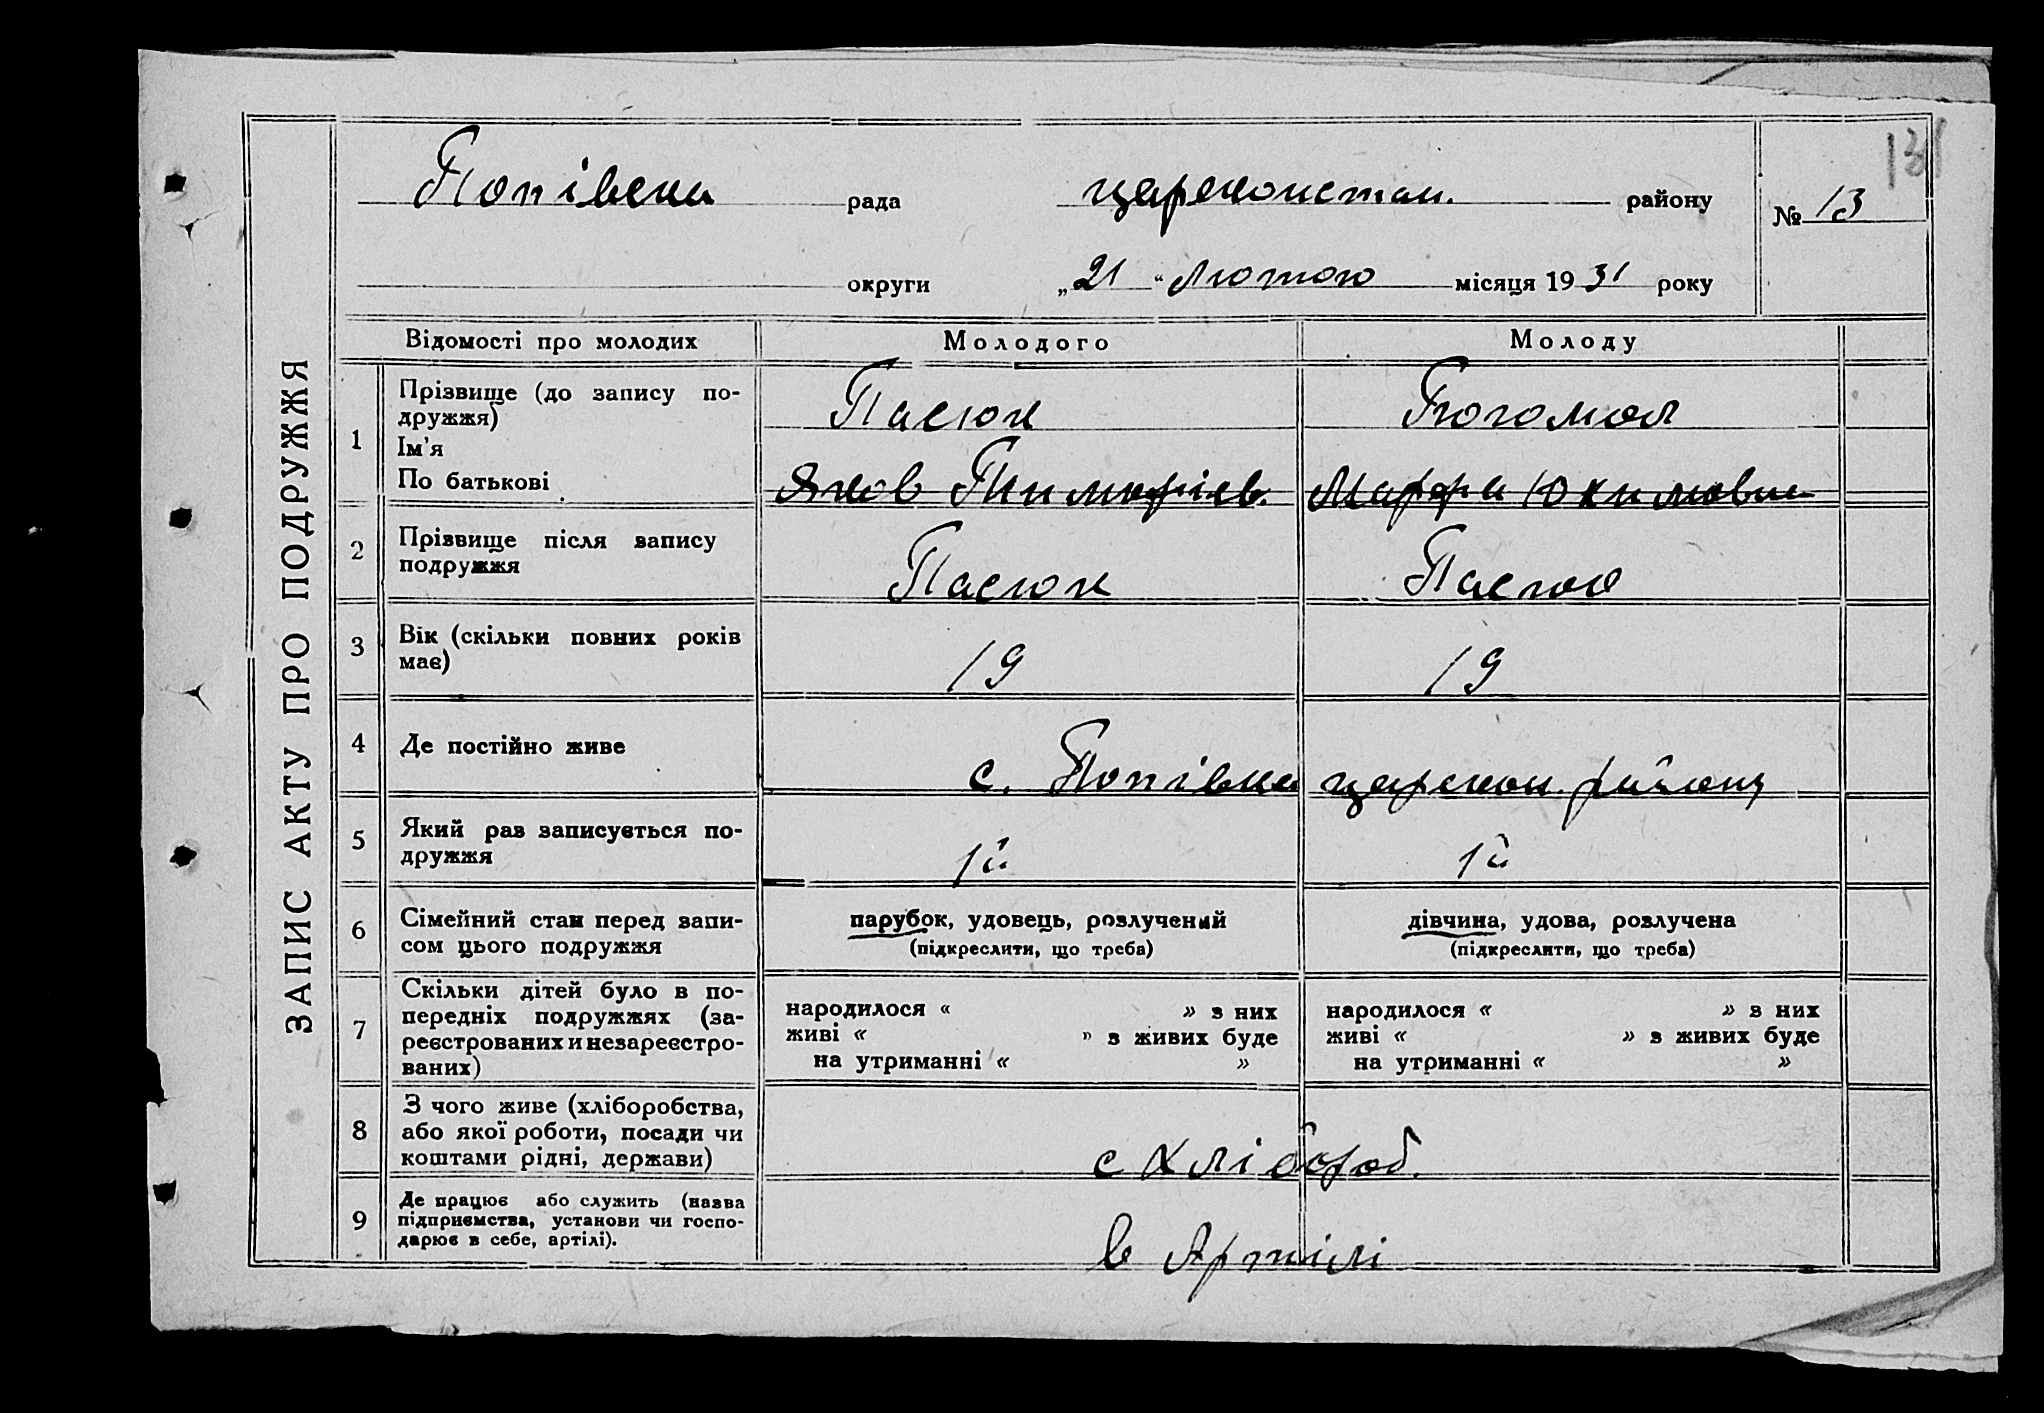 131
Попівська рада царе­констан. району № 13
округи „21“ Лютого місяця 1931 року
ЗАПИС АКТУ ПРО ПОДРУЖЖЯ
Відомості про молодих Молодого Молоду
1 Прізвище (до запису по-
дружжя) Пасюк Богомол
Ім'я
По батькові Яков Тимофіев. Марфа Юхимовна
2 Прізвище після запису
подружжя Пасюк Пасюк
3 Вік (скільки повних років
має) 19 19
4 Де постійно живе с. Попівка царекон. району
5 Який раз записується по-
дружжя 1й 1й
6 Сімейний стан перед запи-
сом цього подружжя
парубок, удовець, розлучений
(підкреслити, що треба)
дівчина, удова, розлучена
(підкреслити, що треба)
7 Скільки дітей було в по-
передніх подружжях (за-
реєстрованих и незареєстро-
ваних)
народилося « » з них
живі « » з живих буде
на утриманні « »
народилося « » з них
живі « » з живих буде
на утриманні « »
8 З чого живе (хліборобства,
або якої роботи, посади чи
коштами рідні, держави) с хлібороб.
9 Де працює або служить (назва
підприємства, установи чи госпо-
дарює в себе, артілі). в Артілі